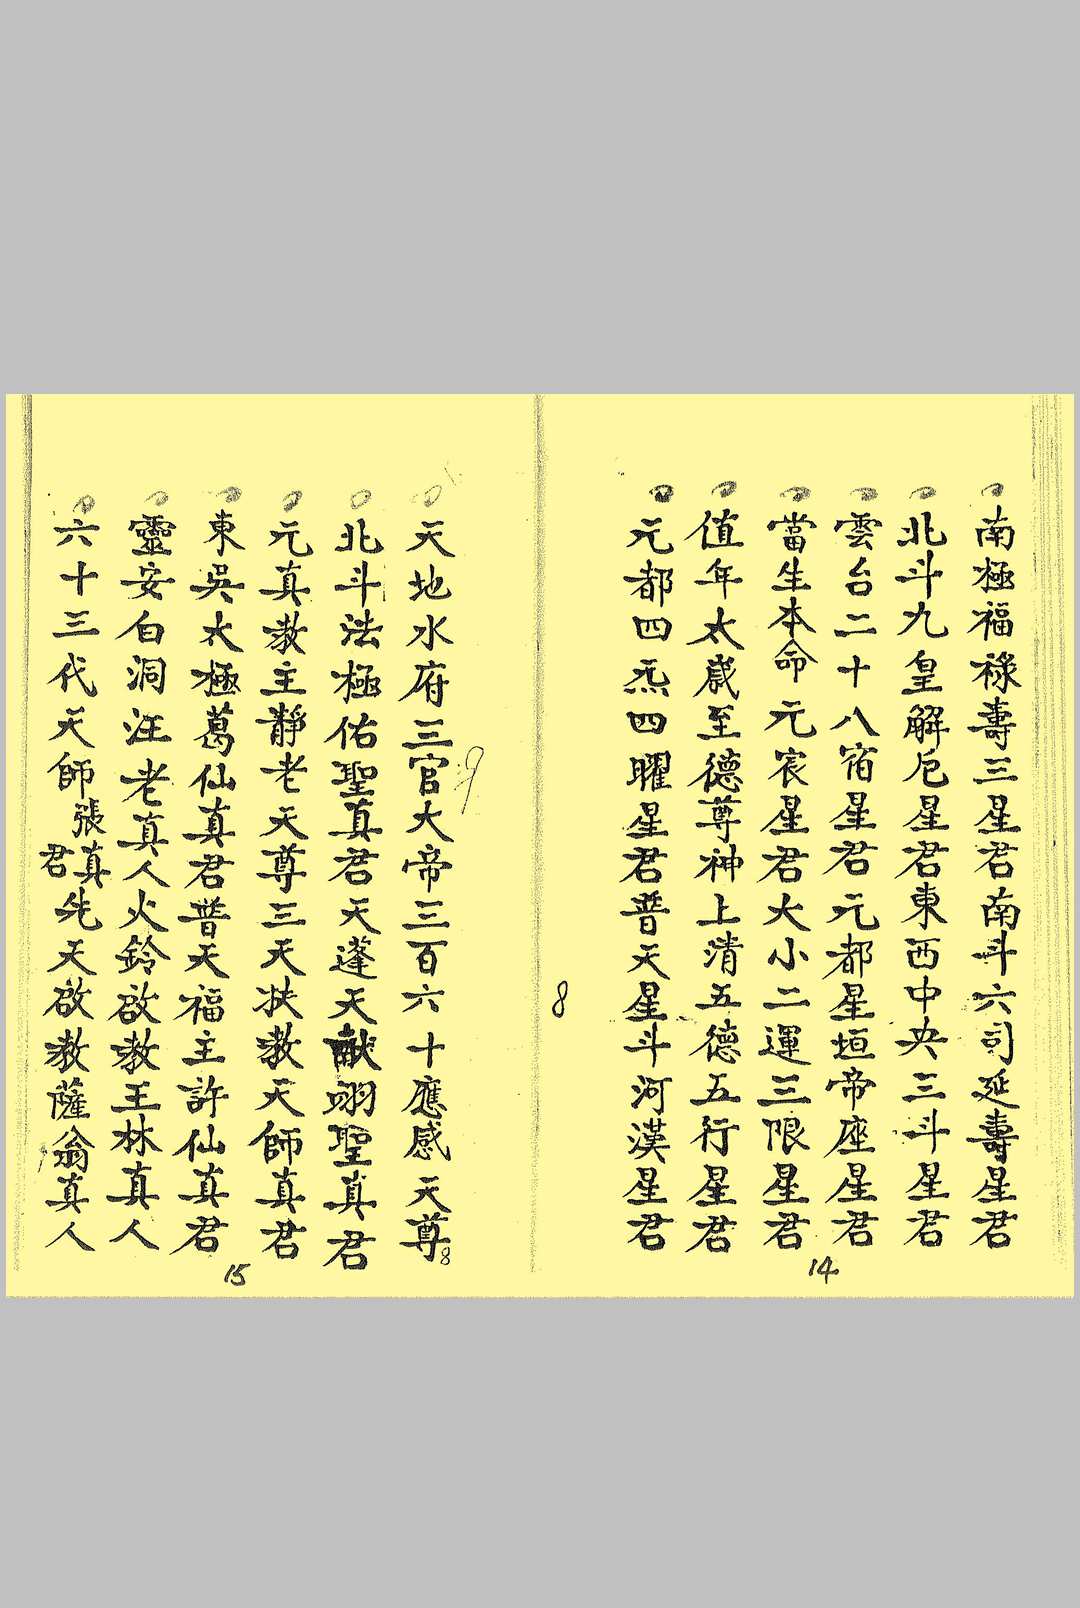 南極福祿壽三星君南斗六司延壽星君
北斗九皇解厄星君東西中央三斗星君
雲台二十八宿星君元都星垣帝座星君
當生本命元宸星君大小二運三限星君
值年太歲至德尊神上清五德五行星君
元都四炁四曜星君普天星斗河漢星君
14
8
天地水府三官大帝三百六十應感天尊
8
9
北斗法極佑聖真君天蓬天猷翊聖真君
元真教主靜老天尊三天扶教天師真君
東吳太極葛仙真君普天福主許仙真君
靈安白洞汪老真人火鈴啟教王林真人
六十三代天師張真君先天啟教薩翁真人
15